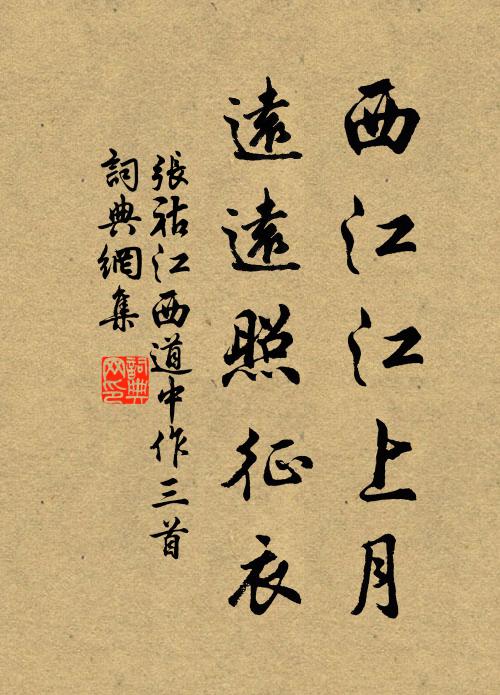 西江江上月
遠遠照征衣
張祜江西道中作三首
詞典網集
詞典
网印